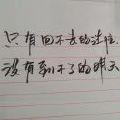 只有回不去的过往
没有到不了的明天